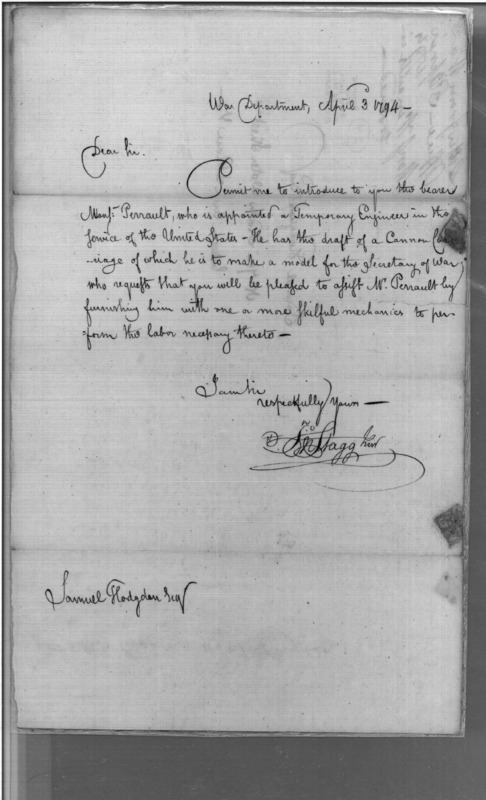 War Department, April 3 1794 –
Dear Sir.
Permit me to introduce to you the bearer
Monsr. Perrault, who is appointed a Temporary Engineer in the
service of the United States – He has the draft of a Cannon Car
-riage of which he is to make a model for the Secretary of War,
who requests that you will be pleased to assist Mr. Perrault by
furnishing him with one or more skilful mechanics to per-
form the labor necessary thereto –
I am Sir
respectfully Yours –
Jno Stagg Junr
Samuel Hodgdon Esqr